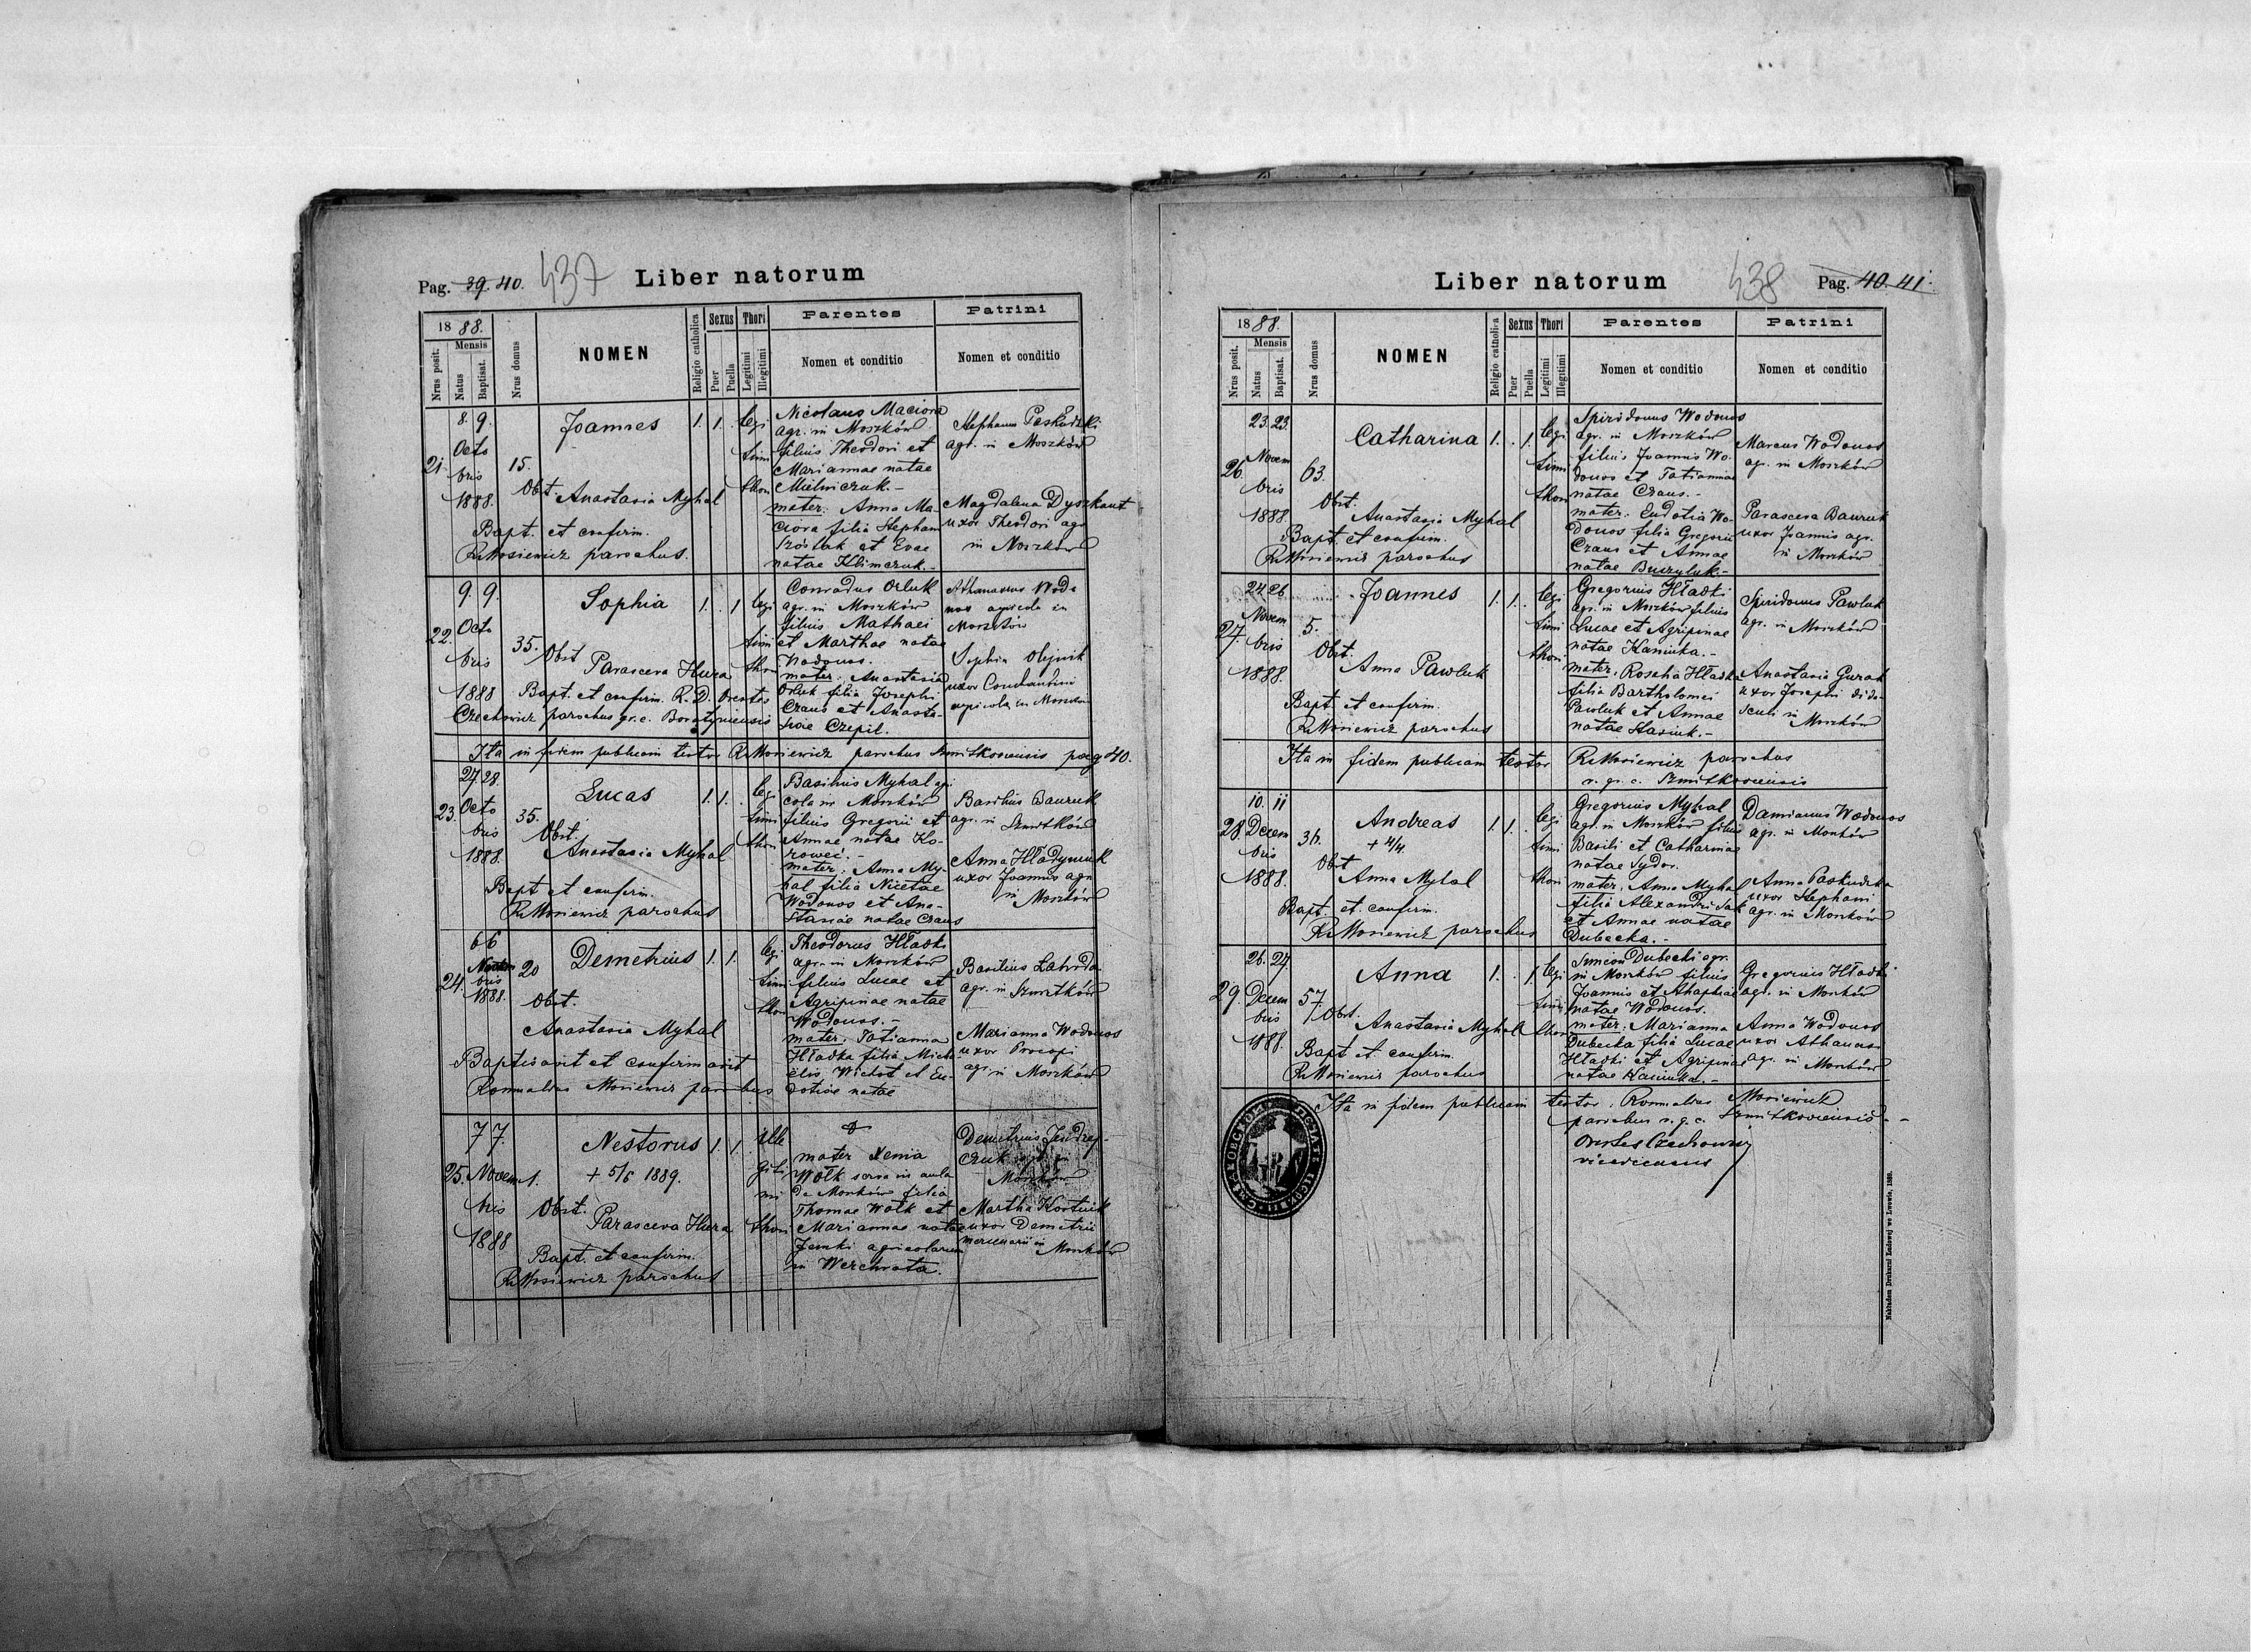 Pag. 39. 40. 437 Liber natorum
1888.
Mensis
Nrus posit.
Natus
Baptisat.
Nrus domus
NOMEN
Religio catholica
Sexus
Puer
Puella
Thori
Legitimi
Illegitimi
Parentes
Nomen et conditio
Patrini
Nomen et conditio
21. 8. 9. Octobris 1888. 15.
Joannes 1. 1. legitimi thori
Obst. Anastasia Myhal
Bapt. et confirm.
R. Mosiewicz parochus.
Nicolaus Maciora
agr. in Moszków
filius Theodori et
Mariannae natae
Mielniczuk.-
mater: Anna Ma-
ciora filia Stephani
et Evae
natae Klimczuk.-
Stephanus
agr. in Moszków
Magdalena Dyszkant
uxor Theodori agr.
in Moszków
22. 9. 9. Octobris 1888 35.
Sophia 1. 1 legitimi thori
Obst Parasceva Hura
Bapt. et confirm. R. D. Orestes
Czechowicz parochus gr. c.
Conradus Orluk
agr. in Moszków
filius Mathaei
et Marthae natae
Wodonos.
mater: Anastasia
Orluk filia Josephi
Czaus et Anasta-
siae Czepil.
Athanasius Wodo-
nos agricola in
Moszków
Sophia Olejnik
uxor Constantini
agricola in
Ita in fidem publicam testor R. Mosiewicz parochus Szmitkoviensis pag 40.
23. 27. 28. Octobris 1888. 35.
Lucas 1. 1. legitimi thori
Obst.
Anastasia Myhal
Bapt et confirm.
R. Mosiewicz parochus
Basilius Myhal agri
cola in Moszków
filius Gregorii et
Annae natae Ko-
rowec. -
mater: Anna My-
hal filia Nicetae
Wodonos et Ana-
stasiae natae Czaus
Basilius Bauruk
agr. in Szmitków
Anna Hładyniuk
uxor Joannis agr.
in Moszków
24. 6 6 Novembris 1888. 20
Demetrius 1. 1. legitimi thori
Obst.
Anastasia Myhal
Baptisavit et confirmavit
Romualdus Mosiewicz parochus
Theodorus Hładki
agr. in Moszków
filius Lucae et
Agripinae natae
Wodonos. -
mater: Tatianna
Hładka filia Micha-
elis et Eu-
dotiae natae
Basilius
agr. in Szmitków
Marianna Wodonos
uxor Procopi
agr. in Moszków
25. 7 7. Novembris 1888 1.
Nestorus 1. 1. illegitimi thori
+ 5/5 1889.
Obst. Parasceva Hura
Bapt. et confirm.
R. Mosiewicz parochus
mater Xenia
Wołk serva in aula
de Moszków filia
Thomae Wołk et
Mariannae natae
agricolarum
in Werchrata.
Demetrius Jendrej-
czuk
Moszków
Martha Kortiuk
uxor Demetrii
mercenarii in Moszków
Liber natorum 438 Pag. 40. 41.
1888.
Mensis
Nrus posit.
Natus
Baptisat.
Nrus domus
NOMEN
Religio catholica
Sexus
Puer
Puella
Thori
Legitimi
Illegitimi
Parentes
Nomen et conditio
Patrini
Nomen et conditio
26. 23. 23. Novembris 1888. 63.
Catharina 1. 1. legitimi thori
Obst.
Anastasia Myhal
Bapt. et confirm.
R. Mosiewicz parochus
Spiridonus Wodonos
agr. in Moszków
filius Joannis Wo-
donos et Tatiannae
natae Czaus. -
mater: Eudotia Wo-
donos filia Gregorii
Czaus et Annae
natae Buczyluk.-
Marcus Wodonos
agr. in Moszków
Parasceva Bauruk
uxor Joannis agr.
in Moszków
27. 24 26. Novembris 1888. 5.
Joannes 1. 1. legitimi thori
Obst.
Anna Pawluk
Bapt. et confirm.
R. Mosiewicz parochus
Gregorius Hładki
agr. in Moszków filius
Lucae et Agripinae
natae Kaniuka. -
mater: Roscha Hładka
filia Bartholomei
Pawluk et Annae
natae Stasiuk. -
Spiridonus Pawluk
agr. in Moszków
Anastasia Gurak
uxor Josephi
in Moszków
Ita in fidem publicam testor R. Mosiewicz parochus
r. gr. c. Szmitkoviensis
28. 10. 11 Decembris 1888. 36.
Andreas 1. 1. legitimi thori
+ 4/4
Obst
Anna Myhal
Bapt. et confirm.
R. Mosiewicz parochus
Gregorius Myhal
agr. in Moszków filius
Basili et Catharinae
natae Sydor.
mater: Anna Myhal
filia Alexandri Sak
et Annae natae
Dubecka. -
Damianus Wodonos
agr. in Moszków
Anna Paskudzka
uxor Stephani
agr. in Moszków
29. 26. 27. Decembris 1888. 57.
Anna 1. 1. legitimi thori
Obst.
Anastasia Myhal
Bapt et confirm.
R. Mosiewicz parochus
Simeon Dubecki agr.
in Moszków filius
Joannis et Ahaphiae
natae Wodonos.
mater: Marianna
Dubecka filia Lucae
Hładki et Agripinae
natae Kaniuka. -
Gregorius Hładki
agr. in Moszków
Anna Wodonos
uxor Athanasi
agr. in Moszków
Ita in fidem publicam testor Romualdus Mosiewicz
parochus r. g. c. Szmitkoviensis -
Orestes Czechowicz
vicedecanus
Nakładem Drukarni Ludowej we Lwowie, 1880.